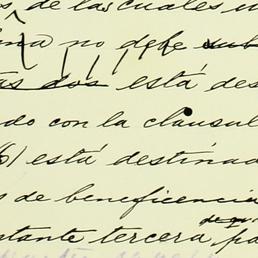 de las cuales
no debe sub
as dos está des
do con la clausul
6) está destinad
s de beneficencia
de que
stante tercera pa